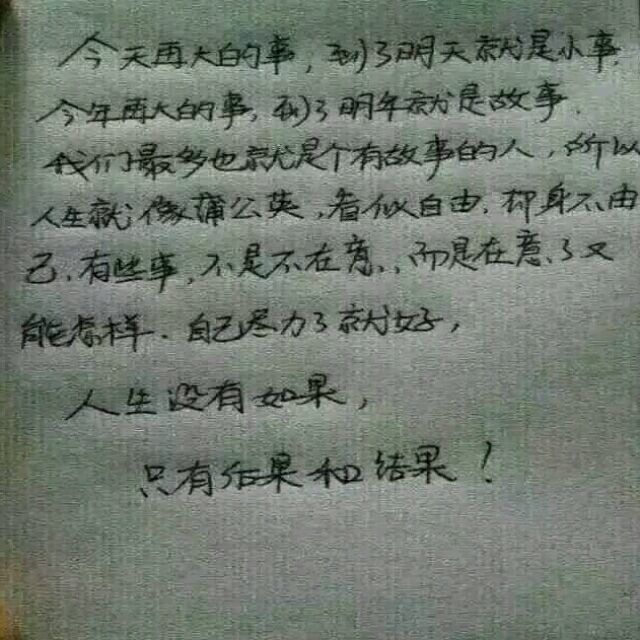 今天再大的事，到了明天就是小事
今年再大的事，到了明年就是故事、
我们最多也就是个有故事的人，所以
人生就像蒲公英，看似自由、却身不由
己、有些事，不是不在意，而是在意了又
能怎样、自己尽力了就好，
人生没有如果，
只有后果和结果！